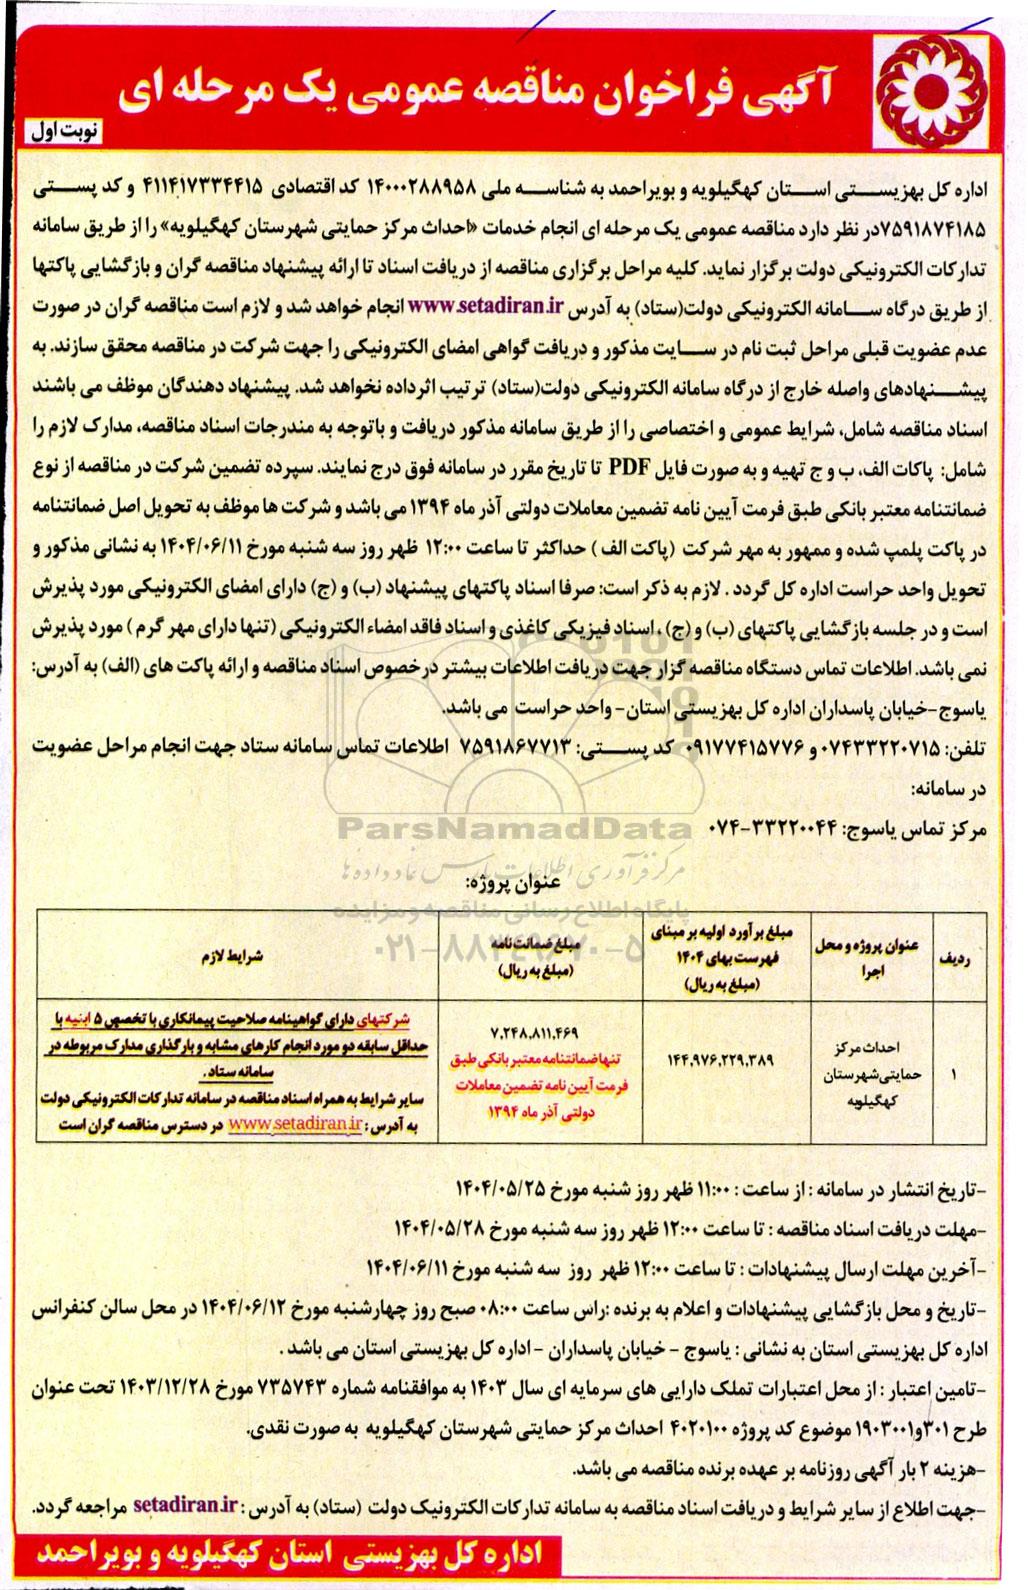 آگهی فراخوان مناقصه عمومی یک مرحله ای
نوبت اول
اداره کل بهزیستی استان کهگیلویه و بویراحمد به شناسه ملی ۱۴۰۰۰۲۸۸۹۵۸ کد اقتصادی ۴۱۱۴۱۷۳۳۴۴۱۵ و کد پستی
۷۵۹۱۸۷۴۱۸۵در نظر دارد مناقصه عمومی یک مرحله ای انجام خدمات «احداث مرکز حمایتی شهرستان کهگیلویه» را از طریق سامانه
تدارکات الکترونیکی دولت برگزار نماید. کلیه مراحل برگزاری مناقصه از دریافت اسناد تا ارائه پیشنهاد مناقصه گران و بازگشایی پاکتها
از طریق درگاه سامانه الکترونیکی دولت(ستاد) به آدرس www.setadiran.ir انجام خواهد شد و لازم است مناقصه گران در صورت
عدم عضویت قبلی مراحل ثبت نام در سایت مذکور و دریافت گواهی امضای الکترونیکی را جهت شرکت در مناقصه محقق سازند. به
پیشنهادهای واصله خارج از درگاه سامانه الکترونیکی دولت(ستاد) ترتیب اثرداده نخواهد شد. پیشنهاد دهندگان موظف می باشند
اسناد مناقصه شامل، شرایط عمومی و اختصاصی را از طریق سامانه مذکور دریافت و باتوجه به مندرجات اسناد مناقصه، مدارک لازم را
شامل: پاکات الف، ب و ج تهیه و به صورت فایل PDF تا تاریخ مقرر در سامانه فوق درج نمایند. سپرده تضمین شرکت در مناقصه از نوع
ضمانتنامه معتبر بانکی طبق فرمت آیین نامه تضمین معاملات دولتی آذر ماه ۱۳۹۴ می باشد و شرکت ها موظف به تحویل اصل ضمانتنامه
در پاکت پلمپ شده و ممهور به مهر شرکت (پاکت الف) حداکثر تا ساعت ۱۲:۰۰ ظهر روز سه شنبه مورخ ۱۴۰۴/۰۶/۱۱ به نشانی مذکور و
تحویل واحد حراست اداره کل گردد . لازم به ذکر است: صرفا اسناد پاکتهای پیشنهاد (ب) و (ج) دارای امضای الکترونیکی مورد پذیرش
است و در جلسه بازگشایی پاکتهای (ب) و (ج) ، اسناد فیزیکی کاغذی و اسناد فاقد امضاء الکترونیکی (تنها دارای مهر گرم) مورد پذیرش
نمی باشد. اطلاعات تماس دستگاه مناقصه گزار جهت دریافت اطلاعات بیشتر درخصوص اسناد مناقصه و ارائه پاکت های (الف) به آدرس:
یاسوج-خیابان پاسداران اداره کل بهزیستی استان- واحد حراست می باشد.
تلفن: ۰۷۴۳۳۲۲۰۷۱۵ و ۰۹۱۷۷۴۱۵۷۷۶ کد پستی: ۷۵۹۱۸۶۷۷۱۳ اطلاعات تماس سامانه ستاد جهت انجام مراحل عضویت
در سامانه:
مرکز تماس یاسوج: ۳۳۲۲۰۰۴۴-۰۷۴
ParsNamadData
مرکز فرآوری اطلاعات پارس نماد داده ها
عنوان پروژه:
پایگاه اطلاع رسانی مناقصه و مزایده
۰۲۱-۸۸۳۴۹۶۷۰-۵
ردیف
عنوان پروژه و محل اجرا
مبلغ برآورد اولیه بر مبنای فهرست بهای ۱۴۰۴ (مبلغ به ریال)
مبلغ ضمانت نامه (مبلغ به ریال)
شرایط لازم
۱
احداث مرکز
حمایتی شهرستان
کهگیلویه
۱۴۴,۹۷۶,۲۲۹,۳۸۹
۷,۲۴۸,۸۱۱,۴۶۹
تنها ضمانتنامه معتبر بانکی طبق
فرمت آیین نامه تضمین معاملات
دولتی آذر ماه ۱۳۹۴
شرکتهای دارای گواهینامه صلاحیت پیمانکاری با تخصص ۵ ابنیه با
حداقل سابقه دو مورد انجام کارهای مشابه و بارگذاری مدارک مربوطه در
سامانه ستاد .
سایر شرایط به همراه اسناد مناقصه در سامانه تدارکات الکترونیکی دولت
به آدرس : www.setadiran.ir در دسترس مناقصه گران است
-تاریخ انتشار در سامانه : از ساعت : ۱۱:۰۰ ظهر روز شنبه مورخ ۱۴۰۴/۰۵/۲۵
-مهلت دریافت اسناد مناقصه : تا ساعت ۱۲:۰۰ ظهر روز سه شنبه مورخ ۱۴۰۴/۰۵/۲۸
-آخرین مهلت ارسال پیشنهادات : تا ساعت ۱۲:۰۰ ظهر روز سه شنبه مورخ ۱۴۰۴/۰۶/۱۱
-تاریخ و محل بازگشایی پیشنهادات و اعلام به برنده :راس ساعت ۰۸:۰۰ صبح روز چهارشنبه مورخ ۱۴۰۴/۰۶/۱۲ در محل سالن کنفرانس
اداره کل بهزیستی استان به نشانی : یاسوج - خیابان پاسداران - اداره کل بهزیستی استان می باشد .
-تامین اعتبار : از محل اعتبارات تملک دارایی های سرمایه ای سال ۱۴۰۳ به موافقتنامه شماره ۷۳۵۷۴۳ مورخ ۱۴۰۳/۱۲/۲۸ تحت عنوان
طرح ۳۰۱و۱۹۰۳۰۰۱ موضوع کد پروژه ۴۰۲۰۱۰۰ احداث مرکز حمایتی شهرستان کهگیلویه به صورت نقدی.
-هزینه ۲ بار آگهی روزنامه بر عهده برنده مناقصه می باشد.
-جهت اطلاع از سایر شرایط و دریافت اسناد مناقصه به سامانه تدارکات الکترونیک دولت (ستاد) به آدرس : setadiran.ir مراجعه گردد.
اداره کل بهزیستی استان کهگیلویه و بویراحمد